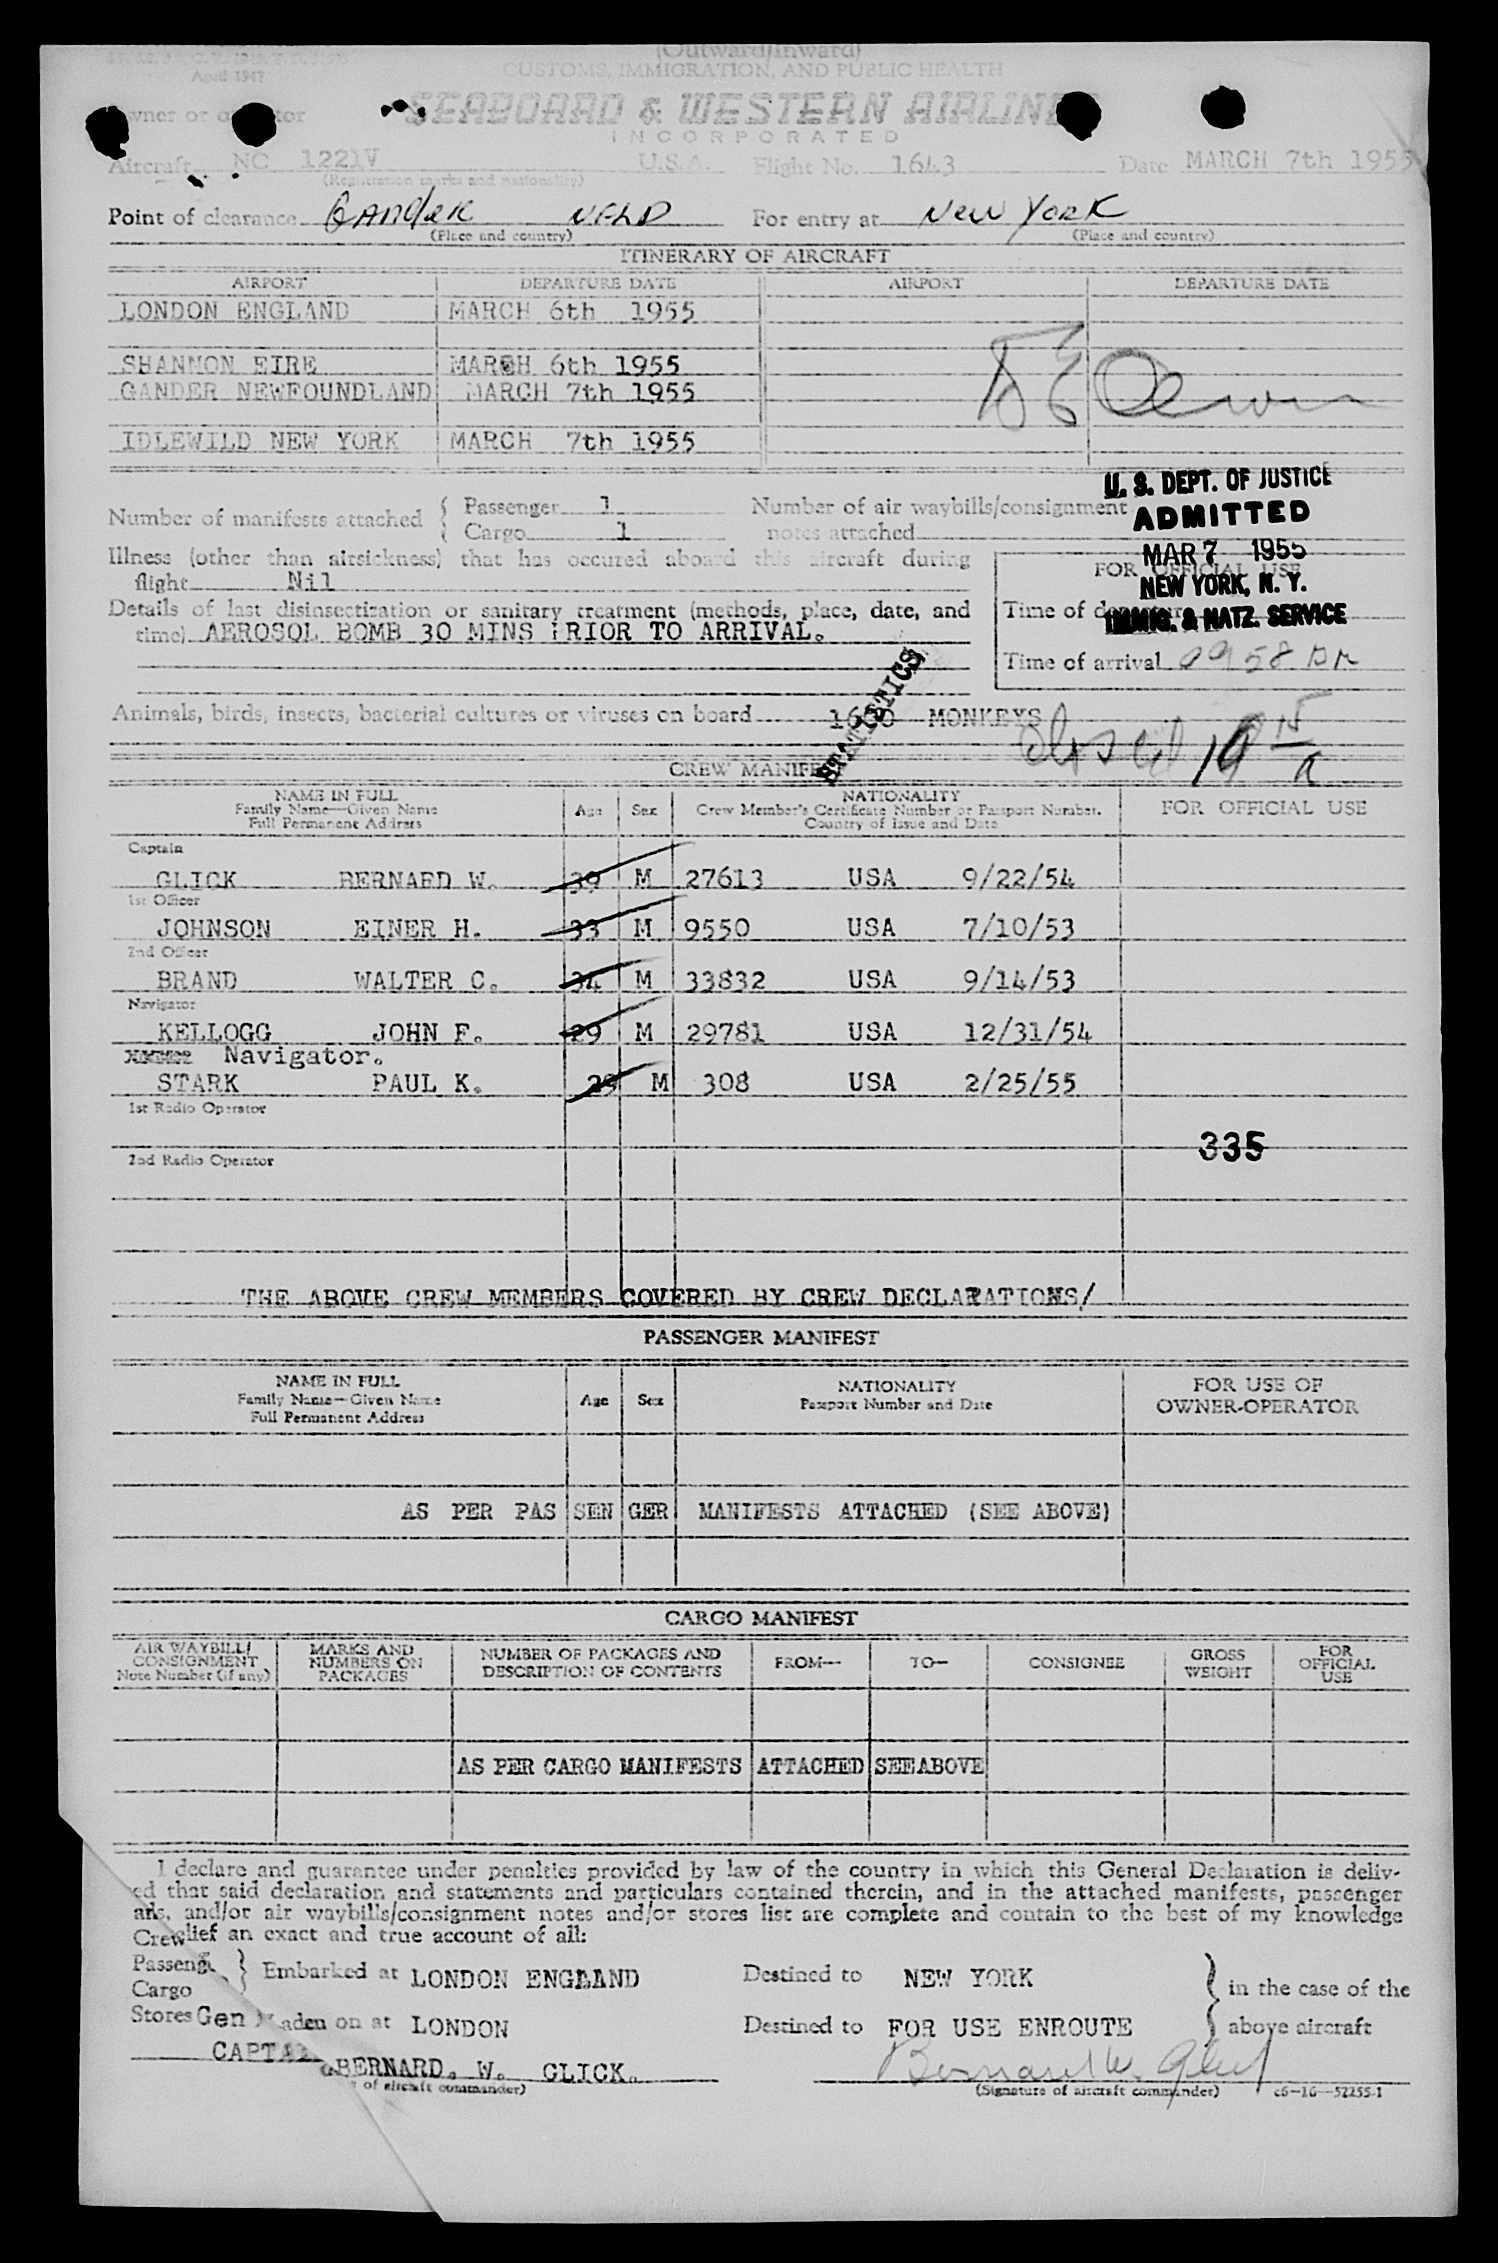 (Outward/Inward)
April 1947
CUSTOMS, IMMIGRATION, AND PUBLIC HEALTH
SEABOARD & WESTERN AIRLINES
INCORPORATED
Aircraft NC 1221V U.S.A. Flight No. 1643 Date MARCH 7th 1955
(Registration marks and nationality)
Point of clearance GANDER NFLD For entry at New York
(Place and country) (Place and country)
ITINERARY OF AIRCRAFT
AIRPORT DEPARTURE DATE AIRPORT DEPARTURE DATE
LONDON ENGLAND MARCH 6th 1955
SHANNON EIRE MARCH 6th 1955
GANDER NEWFOUNDLAND MARCH 7th 1955
IDLEWILD NEW YORK MARCH 7th 1955
U. S. DEPT. OF JUSTICE
ADMITTED
MAR 7 1955
NEW YORK, N. Y.
IMMIG. & NATZ. SERVICE
Number of manifests attached { Passenger 1 Number of air waybills/consignment
Cargo 1 notes attached
Illness (other than airsickness) that has occured aboard this aircraft during
flight Nil
FOR OFFICIAL USE
Details of last disinsectization or sanitary treatment (methods, place, date, and
time) AEROSOL BOMB 30 MINS PRIOR TO ARRIVAL.
Time of departure
Time of arrival 0958 AM
STATISTICS
Animals, birds, insects, bacterial cultures or viruses on board MONKEYS
CREW MANIFEST
NAME IN FULL
Family Name—Given Name
Full Permanent Address
Age Sex
NATIONALITY
Crew Member's Certificate Number or Passport Number.
Country of Issue and Date
FOR OFFICIAL USE
Captain
GLICK BERNARD W. 39 M 27613 USA 9/22/54
1st Officer
JOHNSON EINER H. 33 M 9550 USA 7/10/53
2nd Officer
BRAND WALTER C. 34 M 33832 USA 9/14/53
Navigator
KELLOGG JOHN F. 29 M 29781 USA 12/31/54
Navigator.
STARK PAUL K. 29 M 308 USA 2/25/55
1st Radio Operator
335
2nd Radio Operator
THE ABOVE CREW MEMBERS COVERED BY CREW DECLARATIONS/
PASSENGER MANIFEST
NAME IN FULL
Family Name—Given Name
Full Permanent Address
Age Sex
NATIONALITY
Passport Number and Date
FOR USE OF
OWNER-OPERATOR
AS PER PAS SEN GER MANIFESTS ATTACHED (SEE ABOVE)
CARGO MANIFEST
AIR WAYBILL/
CONSIGNMENT
Note Number (if any)
MARKS AND
NUMBERS ON
PACKAGES
NUMBER OF PACKAGES AND
DESCRIPTION OF CONTENTS
FROM— TO— CONSIGNEE
GROSS
WEIGHT
FOR
OFFICIAL
USE
AS PER CARGO MANIFESTS ATTACHED SEE ABOVE
I declare and guarantee under penalties provided by law of the country in which this General Declaration is deliv-
ed that said declaration and statements and particulars contained therein, and in the attached manifests, passenger
and/or air waybills/consignment notes and/or stores list are complete and contain to the best of my knowledge
lief an exact and true account of all:
Crew
Passeng } Embarked at LONDON ENGLAND Destined to NEW YORK } in the case of the
Cargo
Stores Gen aden on at LONDON Destined to FOR USE ENROUTE } above aircraft
CAPTAI BERNARD. W. GLICK. Bernard W. Glick
of aircraft commander) (Signature of aircraft commander) c6—16—52255-1